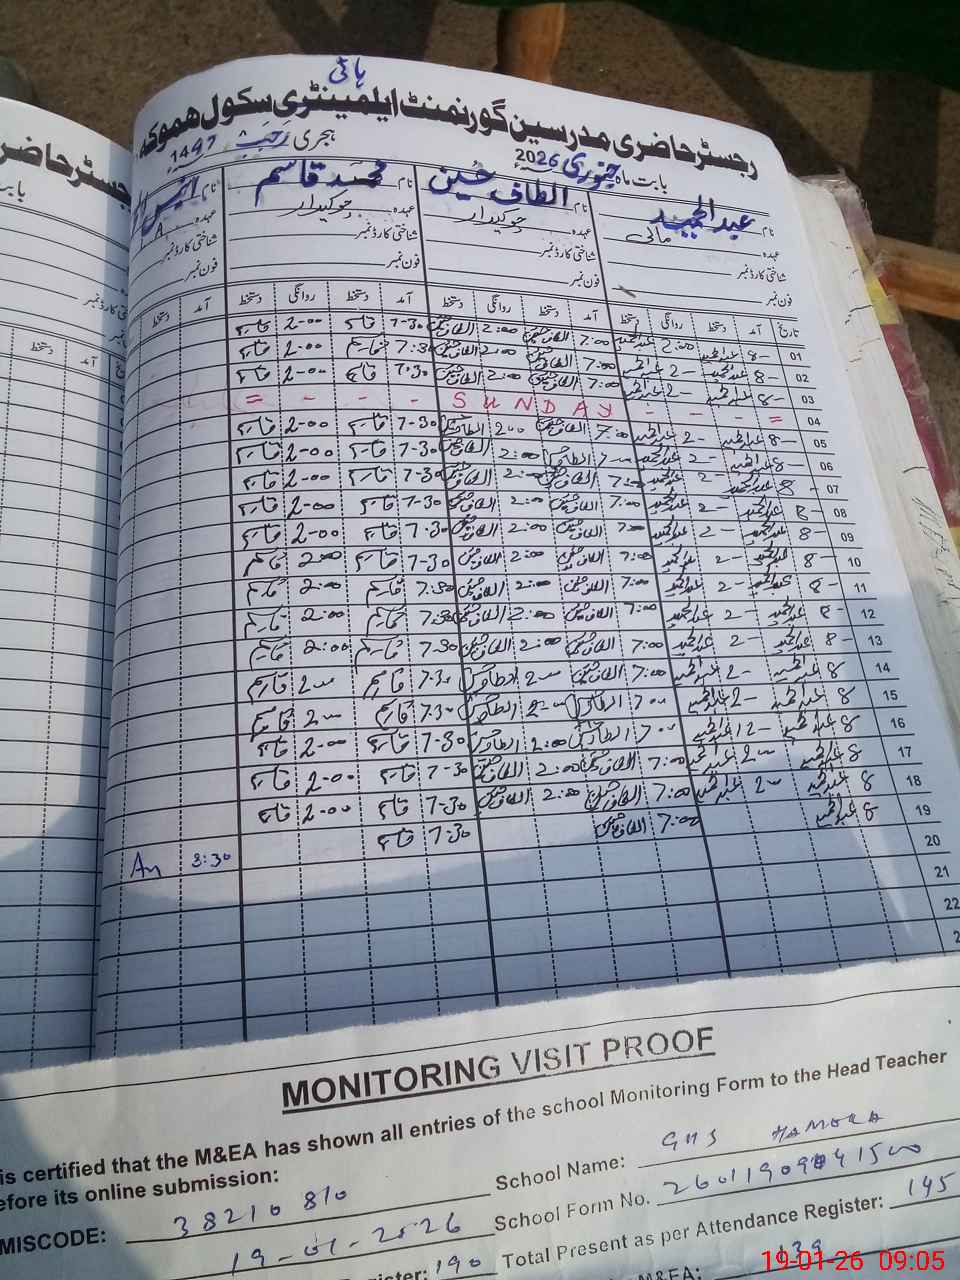 ہائی
رجسٹر حاضری مدرسین گورنمنٹ ایلیمینٹری سکول ھموکہ
بابت ماہ جنوری 2026 ہجری رجب 1447
نام عبدالحمید نام الطاف حسین نام محمد قاسم نام
عہدہ مالی عہدہ چوکیدار عہدہ چوکیدار عہدہ
شناختی کارڈ نمبر شناختی کارڈ نمبر شناختی کارڈ نمبر شناختی کارڈ نمبر
فون نمبر فون نمبر فون نمبر فون نمبر
تاریخ آمد دستخط روانگی دستخط آمد دستخط روانگی دستخط آمد دستخط روانگی دستخط آمد دستخط
01 8- عبدالحمید 2:00 عبدالحمید 7:00 الطاف حسین 2:00 الطاف حسین 7-30 قاسم 2-00 قاسم
02 8- عبدالحمید 2- عبدالحمید 7:00 الطاف حسین 2:00 الطاف حسین 7:30 قاسم 2-00 قاسم
03 8- عبدالحمید 2- عبدالحمید 7:00 الطاف حسین 2:00 الطاف حسین 7:30 قاسم 2-00 قاسم
04 = - - - SUNDAY - - - =
05 8- عبدالحمید 2- عبدالحمید 7:00 الطاف حسین 2:00 الطاف حسین 7-30 قاسم 2-00 قاسم
06 8- عبدالحمید 2- عبدالحمید 7:00 الطاف حسین 2:00 الطاف حسین 7-30 قاسم 2-00 قاسم
07 8- عبدالحمید 2- عبدالحمید 7:00 الطاف حسین 2:00 الطاف حسین 7-30 قاسم 2-00 قاسم
08 8- عبدالحمید 2- عبدالحمید 7:00 الطاف حسین 2:00 الطاف حسین 7-30 قاسم 2-00 قاسم
09 8- عبدالحمید 2- عبدالحمید 7:00 الطاف حسین 2:00 الطاف حسین 7-30 قاسم 2-00 قاسم
10 8- عبدالحمید 2- عبدالحمید 7:00 الطاف حسین 2:00 الطاف حسین 7-30 قاسم 2:00 قاسم
11 8- عبدالحمید 2- عبدالحمید 7:00 الطاف حسین 2:00 الطاف حسین 7:30 قاسم 2:00 قاسم
12 8- عبدالحمید 2- عبدالحمید 7:00 الطاف حسین 2:00 الطاف حسین 7:30 قاسم 2:00 قاسم
13 8- عبدالحمید 2- عبدالحمید 7:00 الطاف حسین 2:00 الطاف حسین 7:30 قاسم 2:00 قاسم
14 8 عبدالحمید 2- عبدالحمید 7:00 الطاف حسین 2:00 الطاف حسین 7:30 قاسم 2:00 قاسم
15 8 عبدالحمید 2- عبدالحمید 7:00 الطاف حسین 2:00 الطاف حسین 7:30 قاسم 2:00 قاسم
16 8 عبدالحمید 12- عبدالحمید 7:00 الطاف حسین 2:00 الطاف حسین 7-30 قاسم 2-00 قاسم
17 8 عبدالحمید 2:00 عبدالحمید 7:00 الطاف حسین 2:00 الطاف حسین 7-30 قاسم 2-00 قاسم
18 8 عبدالحمید 2:00 عبدالحمید 7:00 الطاف حسین 2:00 الطاف حسین 7-30 قاسم 2-00 قاسم
19 8 عبدالحمید 7:00 الطاف حسین 7:30 قاسم 8:30
20
21
22
MONITORING VISIT PROOF
is certified that the M&EA has shown all entries of the school Monitoring Form to the Head Teacher
efore its online submission:
School Name: GHS HAMOKA
MISCODE: 38210810
School Form No. 
19-01-2026
ister: 190 Total Present as per Attendance Register: 145
M&EA: 139
19-01-26 09:05